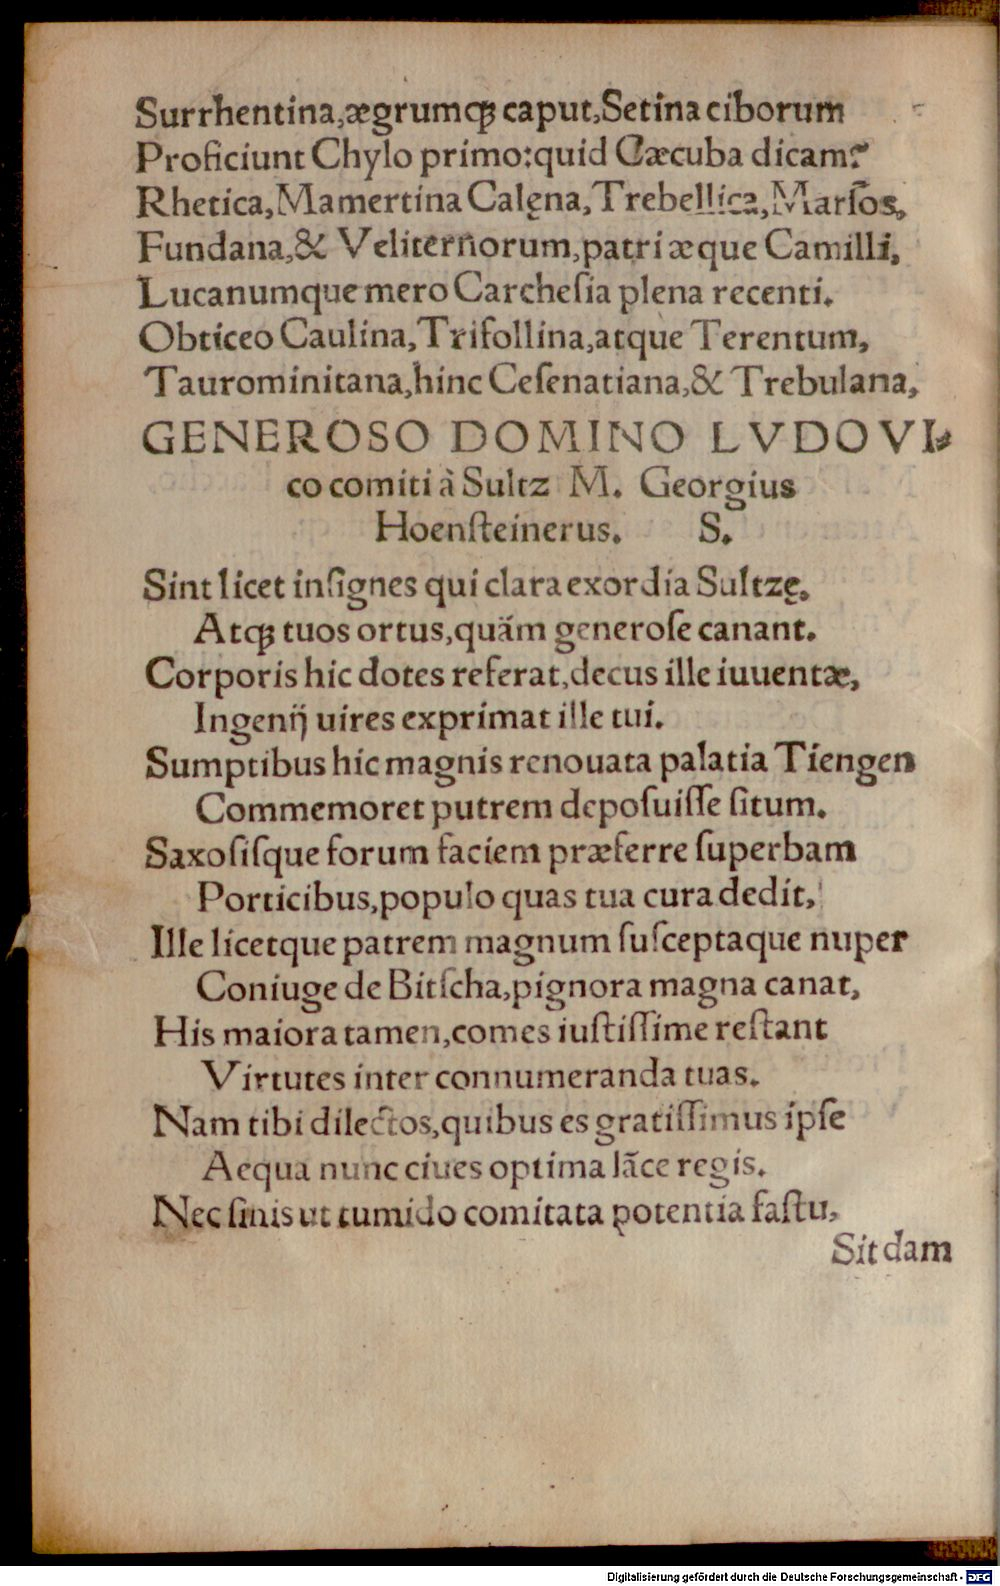 Surrhentina,ægrumqꝫ caput,Setina ciborum
Proficiunt Chylo primo:quid Cæcuba dicam?
Rhetica,Mamertina Calęna,Trebellica,Marſos,
Fundana,& Veliternorum,patri æque Camilli,
Lucanumque mero Carcheſia plena recenti.
Obticeo Caulina,Trifollina,atque Terentum,
Taurominitana,hinc Ceſenatiana,& Trebulana,
GENEROSO DOMINO LVDOVI⸗
co comiti à Sultz M. Georgius
Hoenſteinerus. S.
Sint licet inſignes qui clara exordia Sultzę,
Atqꝫ tuos ortus,quám generoſe canant.
Corporis hic dotes referat,decus ille iuuentæ,
Ingenij uires exprimat ille tui.
Sumptibus hic magnis renouata palatia Tiengen
Commemoret putrem depoſuiſſe ſitum.
Saxoſiſque forum faciem præferre ſuperbam
Porticibus,populo quas tua cura dedit,
Ille licetque patrem magnum ſuſceptaque nuper
Coniuge de Bitſcha,pignora magna canat,
His maiora tamen,comes iuſtiſſime reſtant
Virtutes inter connumeranda tuas.
Nam tibi dilectos,quibus es gratiſſimus ipſe
Aequa nunc ciues optima lãce regis.
Nec ſinis ut tumido comitata potentia faſtu,
Sit dam
Digitalisierung gefördert durch die Deutsche Forschungsgemeinschaft - DFG